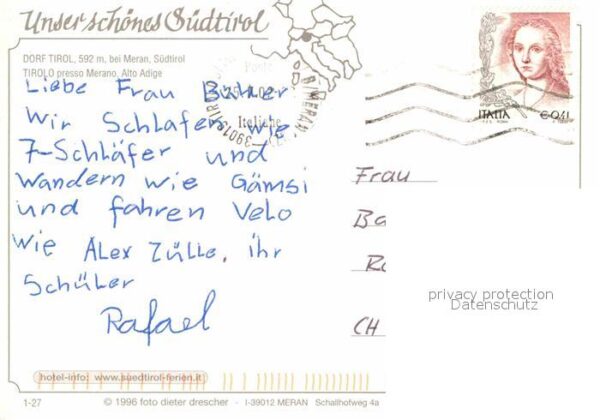 Unser schönes Südtirol
DORF TIROL, 592 m, bei Meran, Südtirol
TIROLO presso Merano, Alto Adige
Liebe Frau Bühler
Wir Schlafen wie
7-Schläfer und
wandern wie Gämsi
und fahren Velo
wie Alex Zülle, ihr
Schüler
Rafael
Poste
Italiane
39012 MERAN
ITALIA €0,41
Frau
Ba
CH
privacy protection
Datenschutz
hotel-info: www.suedtirol-ferien.it
1-27 © 1996 foto dieter drescher - I-39012 MERAN Schallhofweg 4a